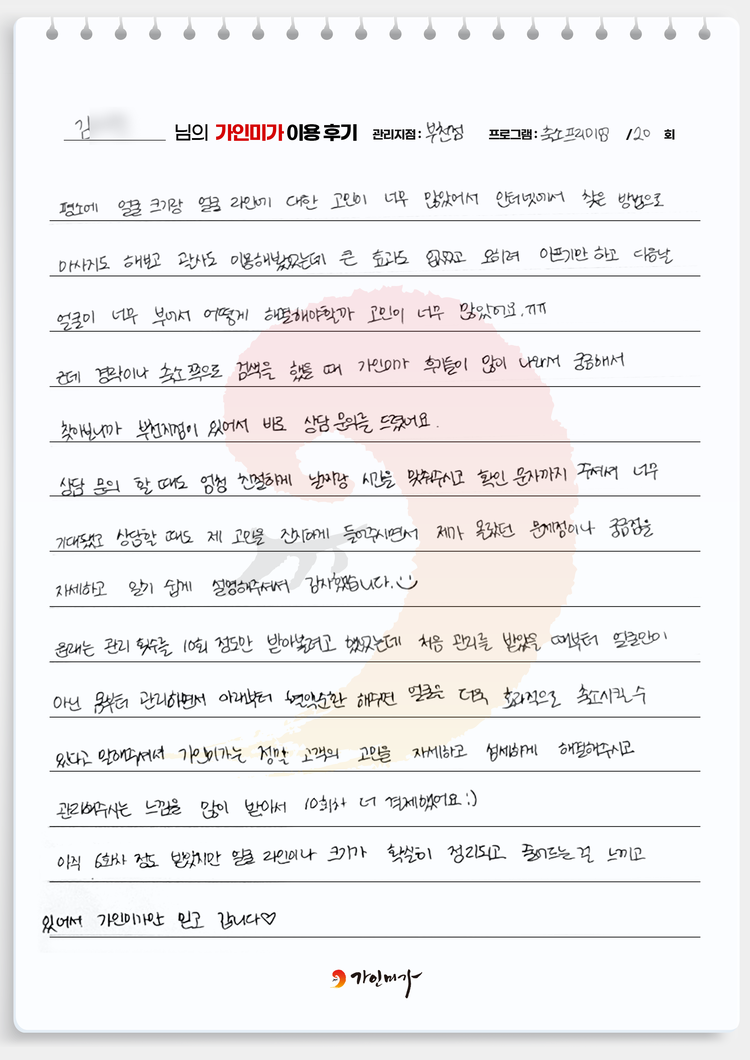 김 님의 가인미가 이용 후기 관리지점 : 부천점 프로그램 : 축소프라임 /20 회
평소에 얼굴 크기랑 얼굴 라인에 대한 고민이 너무 많았어서 인터넷에서 찾은 방법으로
마사지도 해보고 괄사도 이용해봤었는데 큰 효과도 없었고 오히려 아프기만 하고 다음날
얼굴이 너무 부어서 어떻게 해결해야할까 고민이 너무 많았어요.ㅠㅠ
근데 경락이나 축소 쪽으로 검색을 했을 때 가인미가 후기들이 많이 나와서 궁금해서
찾아보니까 부천지점이 있어서 바로 상담 문의를 드렸어요.
상담 문의 할 때도 엄청 친절하게 날짜랑 시간을 맞춰주시고 확인 문자까지 주셔서 너무
기대됐고 상담할 때도 제 고민을 진지하게 들어주시면서 제가 몰랐던 문제점이나 궁금점을
자세하고 알기 쉽게 설명해주셔서 감사했습니다.
원래는 관리 횟수를 10회 정도만 받아볼려고 했었는데 처음 관리를 받았을 때부터 얼굴만이
아닌 몸부터 관리하면서 아래부터 혈액순환 해주면 얼굴은 더욱 효과적으로 축소시킬 수
있다고 말해주셔서 가인미가는 정말 고객의 고민을 자세하고 섬세하게 해결해주시고
관리해주시는 느낌을 많이 받아서 10회차 더 결제했어요 :)
아직 6회차 정도 받았지만 얼굴 라인이나 크기가 확실히 정리되고 줄어드는 걸 느끼고
있어서 가인미가만 믿고 갑니다♡
가인미가